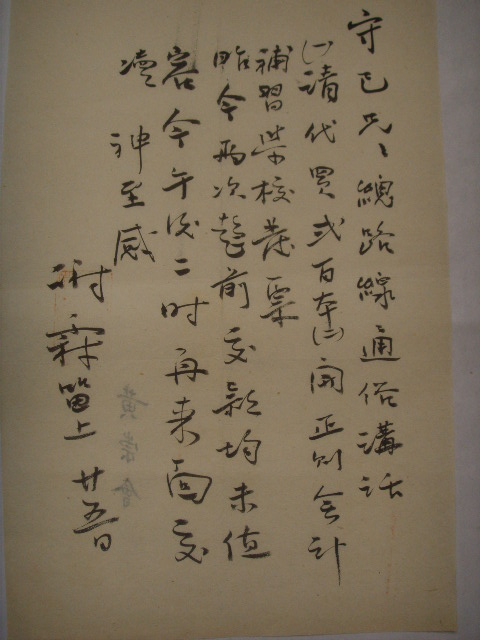 守已兄：總路線通俗講話
(一)請代買弍百本(二)開正則會計
補習學校發票
昨今兩次趨前交款均未值
容今午後二時再來面交
瀆 神至感
謝霖留上 廿五日